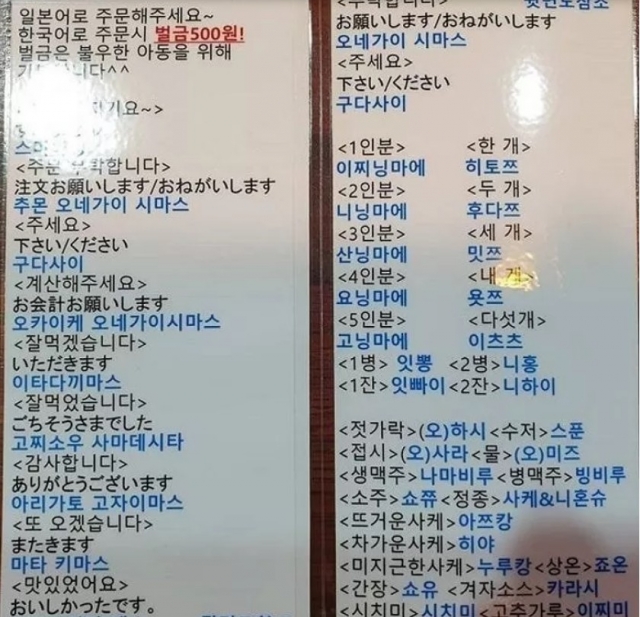 일본어로 주문해주세요~
한국어로 주문시 벌금500원!
벌금은 불우한 아동을 위해
<주문 부탁합니다>
注文お願いします/おねがいします
추몬 오네가이 시마스
<주세요>
下さい/ください
구다사이
<계산해주세요>
お会計お願いします
오카이케 오네가이시마스
<잘먹겠습니다>
いただきます
이타다끼마스
<잘먹었습니다>
ごちそうさまでした
고찌소우 사마데시타
<감사합니다>
ありがとうございます
아리가토 고자이마스
<또 오겠습니다>
またきます
마타 키마스
<맛있었어요>
おいしかったです。
お願いします/おねがいします
오네가이 시마스
<주세요>
下さい/ください
구다사이
<1인분> <한 개>
이찌닝마에 히토쯔
<2인분> <두 개>
니닝마에 후다쯔
<3인분> <세 개>
산닝마에 밋쯔
<4인분> <내 개>
요닝마에 욧쯔
<5인분> <다섯개>
고닝마에 이츠츠
<1병> 잇뽕 <2병>니홍
<1잔>잇빠이<2잔>니하이
<젓가락>(오)하시 <수저>스푼
<접시>(오)사라 <물>(오)미즈
<생맥주>나마비루<병맥주>빙비루
<소주>쇼쮸 <정종>사케&니혼슈
<뜨거운사케>아쯔캉
<차가운사케>히야
<미지근한사케>누루캉<상온>죠온
<간장>쇼유 <겨자소스>카라시
<시치미>시치미<고추가루>이찌미